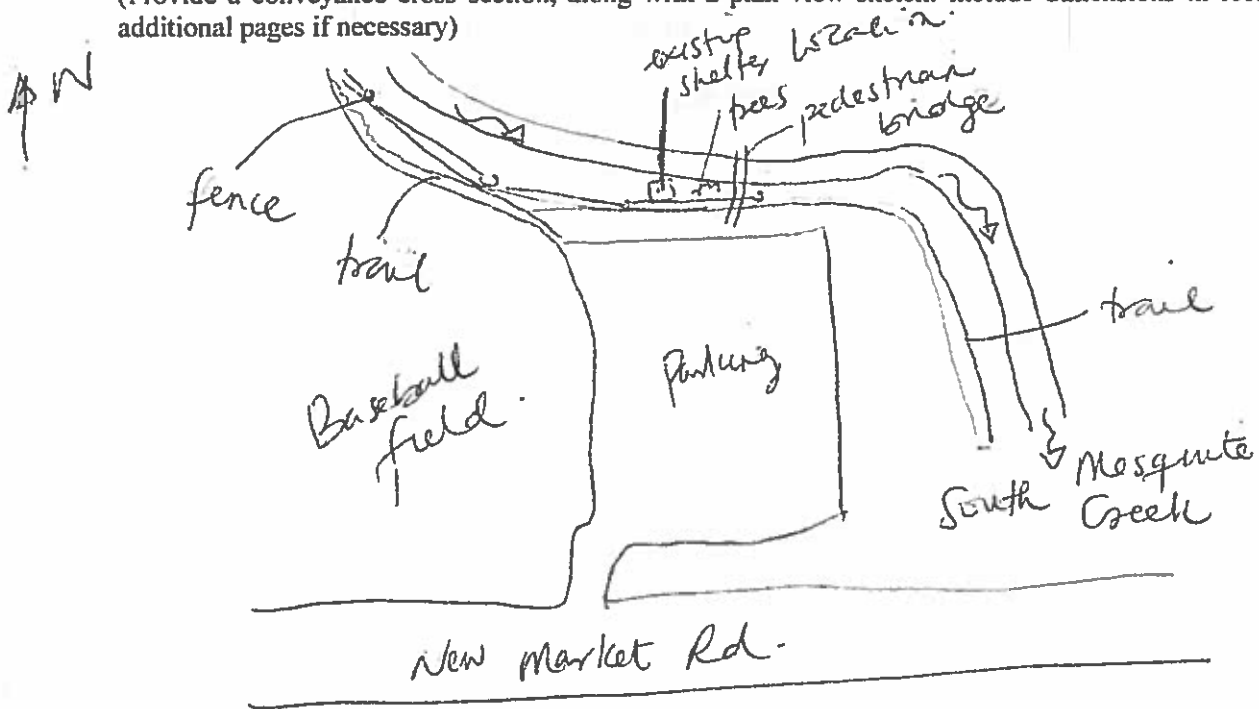 additional pages if necessary)
N
existing
shelter location.
trees
pedestrian
bridge
fence
trail
Baseball
field.
Parking
trail
South Mesquite
Creek
New Market Rd.